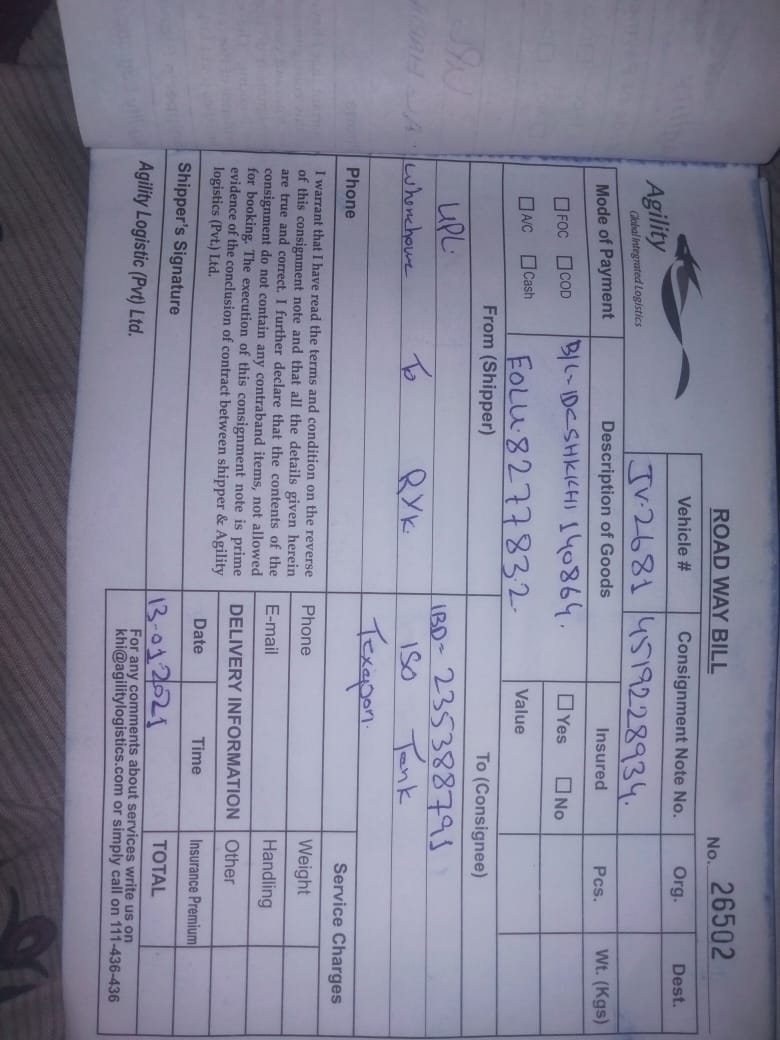 ROAD WAY BILL
No. 26502
Agility
Global Integrated Logistics
Vehicle # Consignment Note No. Org. Dest.
JV-2681 4519228934.
Mode of Payment Description of Goods Insured Pcs. Wt. (Kgs)
FOC COD B/L- IDCSHKKHI 140864. Yes No
A/C Cash EOLU-8277832. Value
From (Shipper) To (Consignee)
UPL. IBD- 235388791
To RYK. ISO Tank
Texapon.
Phone Service Charges
I warrant that I have read the terms and condition on the reverse
of this consignment note and that all the details given herein
are true and correct. I further declare that the contents of the
consignment do not contain any contraband items, not allowed
for booking. The execution of this consignment note is prime
evidence of the conclusion of contract between shipper & Agility
logistics (Pvt.) Ltd.
Phone Weight
E-mail Handling
DELIVERY INFORMATION Other
Date Time Insurance Premium
Shipper's Signature 13-01-2021 TOTAL
Agility Logistic (Pvt) Ltd.
For any comments about services write us on
khi@agilitylogistics.com or simply call on 111-436-436